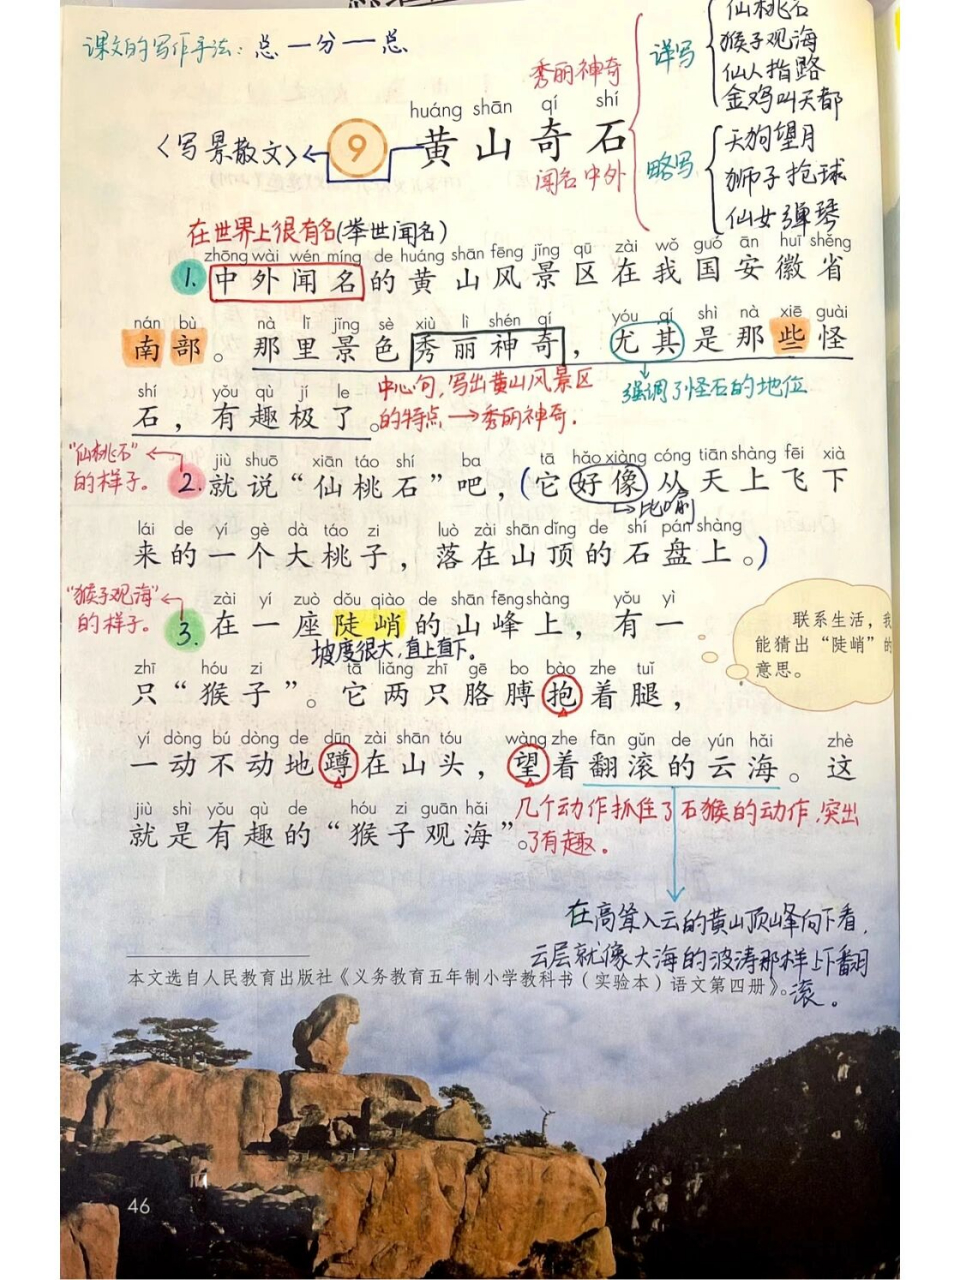 课文的写作手法：总一分一总
秀丽神奇
闻名中外
详写
仙桃石
猴子观海
仙人指路
金鸡叫天都
略写
天狗望月
狮子抢球
仙女弹琴
〈写景散文〉
9
huáng shān qí shí
黄山奇石
在世界上很有名(举世闻名)
zhōng wài wén míng de huáng shān fēng jǐng qū zài wǒ guó ān huī shěng
1. 中外闻名的黄山风景区在我国安徽省
nán bù nà lǐ jǐng sè xiù lì shén qí yóu qí shì nà xiē guài
南部。那里景色秀丽神奇，尤其是那些怪
强调了怪石的地位
shí yǒu qù jí le
石，有趣极了。
中心句，写出黄山风景区
的特点→秀丽神奇.
"仙桃石"
的样子。
jiù shuō xiān táo shí ba tā hǎo xiàng cóng tiān shàng fēi xià
2. 就说“仙桃石”吧，(它好像从天上飞下
比喻
lái de yí gè dà táo zi luò zài shān dǐng de shí pán shàng
来的一个大桃子，落在山顶的石盘上。)
"猴子观海"
的样子。
zài yí zuò dǒu qiào de shān fēng shàng yǒu yì
3. 在一座陡峭的山峰上，有一
坡度很大，直上直下。
联系生活，我
能猜出“陡峭”的
意思。
zhī hóu zi tā liǎng zhī gē bo bào zhe tuǐ
只“猴子”。它两只胳膊抱着腿，
yí dòng bú dòng de dūn zài shān tóu wàng zhe fān gǔn de yún hǎi zhè
一动不动地蹲在山头，望着翻滚的云海。这
jiù shì yǒu qù de hóu zi guān hǎi
就是有趣的“猴子观海”。
几个动作抓住了石猴的动作，突出
了有趣。
在高耸入云的黄山顶峰向下看，
云层就像大海的波涛那样上下翻
滚。
本文选自人民教育出版社《义务教育五年制小学教科书（实验本）语文第四册》。
46